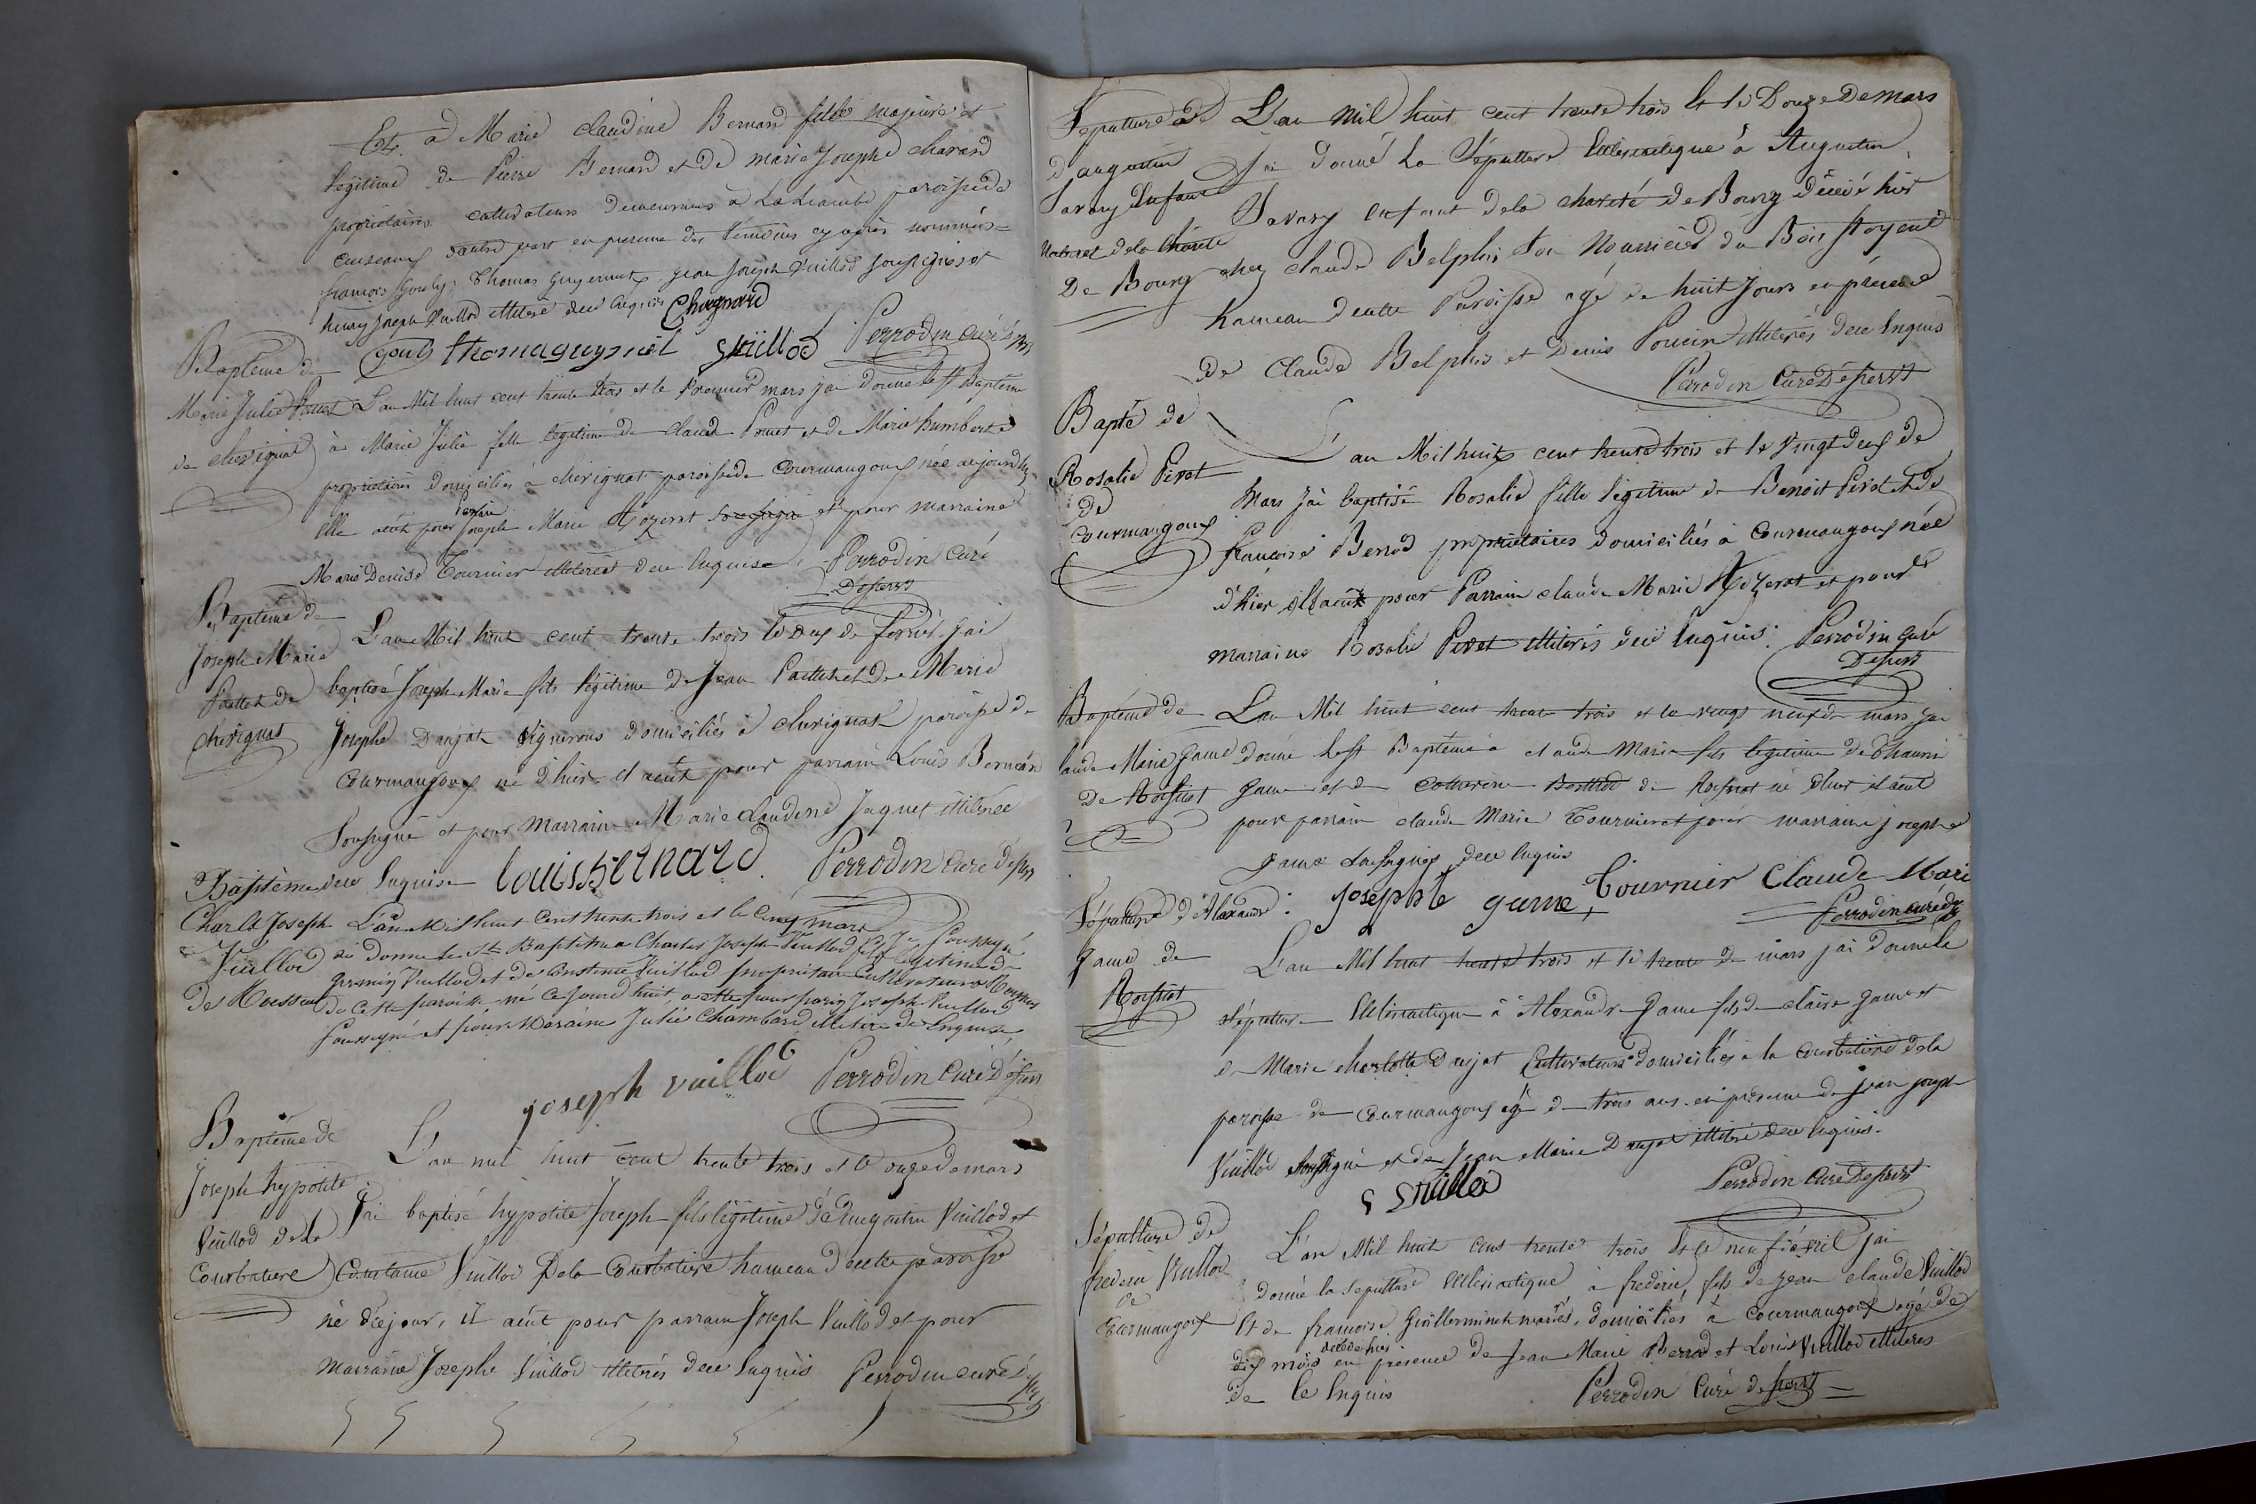 Et a Marie claudine Bernard fille majeure et
légitime de Pierre Bernard et de marie Josephe
propriétaires cultivateurs demeurans a paroisse de
Cuiseaux d'autre part en presence des témoins cy après nommés
françois Gouly, Thomas Guyennet, jean Joseph Vuillod soussignés et
henry Joseph Vuillod illitéré dece enquis
gouly thomaguyenet Vuillod Perrodin curé
Baptême de
Marie Julie
de cherignat
L'an Mil huit cent trente trois et le Premier mars j'ai donné le St Baptême
à Marie Julie fille légitime de claude et de Marie humberte
propriétaires domiciliés à cherignat paroisse de Courmangoux née aujourd'hui
Elle aeut pour parrain Joseph Marie et pour marraine
Marie Denise Tournier illiterées dece enquise Perrodin curé
Desserv
Baptême de
Joseph Marie
de
cherignat
L'an Mil huit cent trente trois le deux de j'ai
baptisé Joseph Marie fils légitime de Jean et de Marie
Josephe Danjat vignerons domiciliés à cherignat paroisse de
Courmangoux né d'hier il aeut pour parrain Louis Bernard
Soussigné et pour Marraine Marie claudine Jaquet illiterée
dece Enquise louis bernard Perrodin curé desserv
Baptême de
Charle Joseph
Vuillod
de Roussoux
L'an Mil huit Cent trente trois et le Cinq mars Je Soussigné
ai Donné le St Baptême a Charles Joseph Vuillod fils Legitime de
Vuillod et de Constence Vuillod propriétaire Cultivateurs a
de Cette paroisse né Ce Jourd'huit, a ette pour parin Joseph Vuillod
Soussigné et pour Maraine Julie Chambard illiterée de Enquise,
joseph vuillod Perrodin curé Desserv
Baptême de
Joseph hypotite
Vuillod de la
Courbatiere
L'an mil huit cent trente trois et le onze de mars
J'ai baptisé hypotite Joseph fils légitime d'augustin Vuillod et
Constance Vuillod De la Courbatiere hameau de cette paroisse
né de ce jour, il aeut pour parrain Joseph Vuillod et pour
marraine Josephe Vuillod illiterés dece enquis Perrodin curé
Sépulture
d'augustin
Savary Enfant
naturel de la Charité
De Bourg
L'an Mil huit cent trente trois Et le Douze De Mars
J'ai donné la Sépulture Ecclésiastique à Augustin
Savary enfant dela charité de Bourg décédé hier
chez claude Belphis son Nourricier du Bois
hameau de cette Paroisse agé de huit Jours en présence
de Claude Belphis et Denis Poncin illiterés dece Enquis
Perrodin Curé Desserv
Bapte de
Rosalie Pirat
de
Courmangoux
L'an Mil huit cent trente trois et le vingt deux de
Mars j'ai baptisé Rosalie fille légitime de Benoit Pirat et de
françoise Berrod propriétaires domiciliés à Courmangoux née
d'hier elle aeut pour Parrain claude Marie et pour
marraine Rosalie Pirat illiterés dece Enquis. Perrodin curé
Desserv
Baptême de
laude Marie game
De Roissiat
L'an Mil huit cent trente trois et le vingt neuf de mars j'ai
donné le St Baptême a claude Marie fils legitime de
game et de Catherine de Roissiat né d'hier il aeut
pour parrain claude Marie Tournier et pour marraine josephe
game soussignés dece enquis
josephte game, Tournier Claude Mari
Perrodin curé
Sépulture d'Alexandre
game de
Roissiat
L'an Mil huit trente trois et le trente de mars j'ai donné la
sépulture Ecclésiastique à Alexandre game fils de claire game et
de Marie charlotte Danjat Cultivateurs domiciliés a la Courbatière dela
paroisse de Courmangoux agé de trois ans en présence de jean joseph
Vuillod soussigné et de Jean Marie Danjat illitéré dece enquis.
Vuillod
Perrodin curé Desserv
Sépulture de
frederic Vuillod
de
Courmangoux
L'an Mil huit cent trente trois Et le neuf avril j'ai
donné la sepulture Ecclésiastique à frederic, fils de jean claude Vuillod
Et de francoise Guillerminet mariés, domiciliés à Courmangoux agé de
dix mois décédé hier en présence de Jean Marie Berrod et Louis Vuillod illiteres
de ce Enquis Perrodin Curé desserv